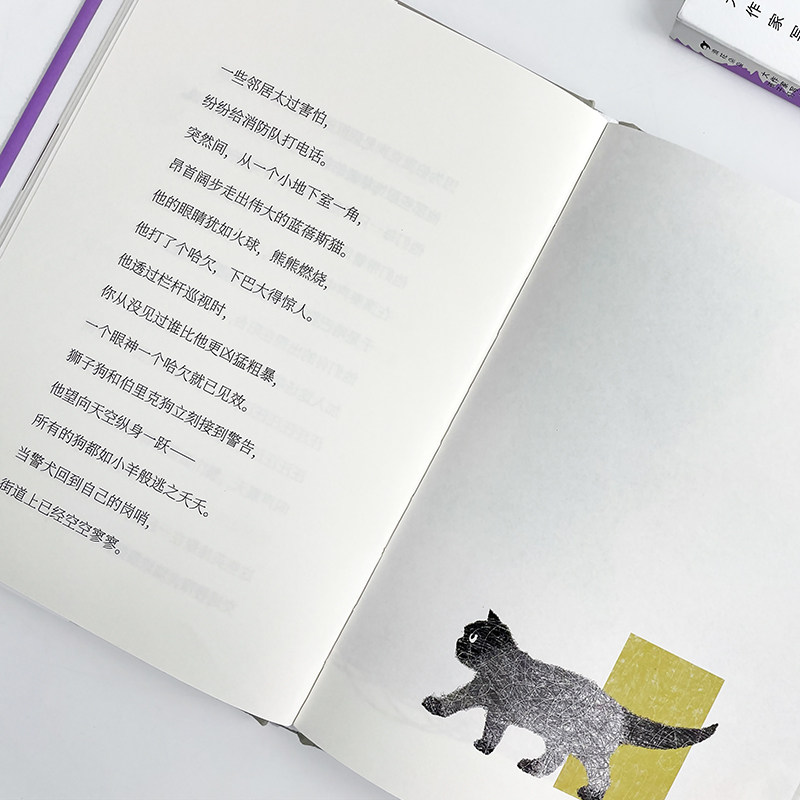 一些邻居太过害怕，
纷纷给消防队打电话。
突然间，从一个小地下室一角，
昂首阔步走出伟大的蓝蓓斯猫。
他的眼睛犹如火球，熊熊燃烧，
他打了个哈欠，下巴大得惊人。
他透过栏杆巡视时，
你从没见过谁比他更凶猛粗暴，
一个眼神一个哈欠就已见效。
狮子狗和伯里克狗立刻接到警告，
他望向天空纵身一跃——
所有的狗都如小羊般逃之夭夭。
当警犬回到自己的岗哨，
街道上已经空空寥寥。
大作家写